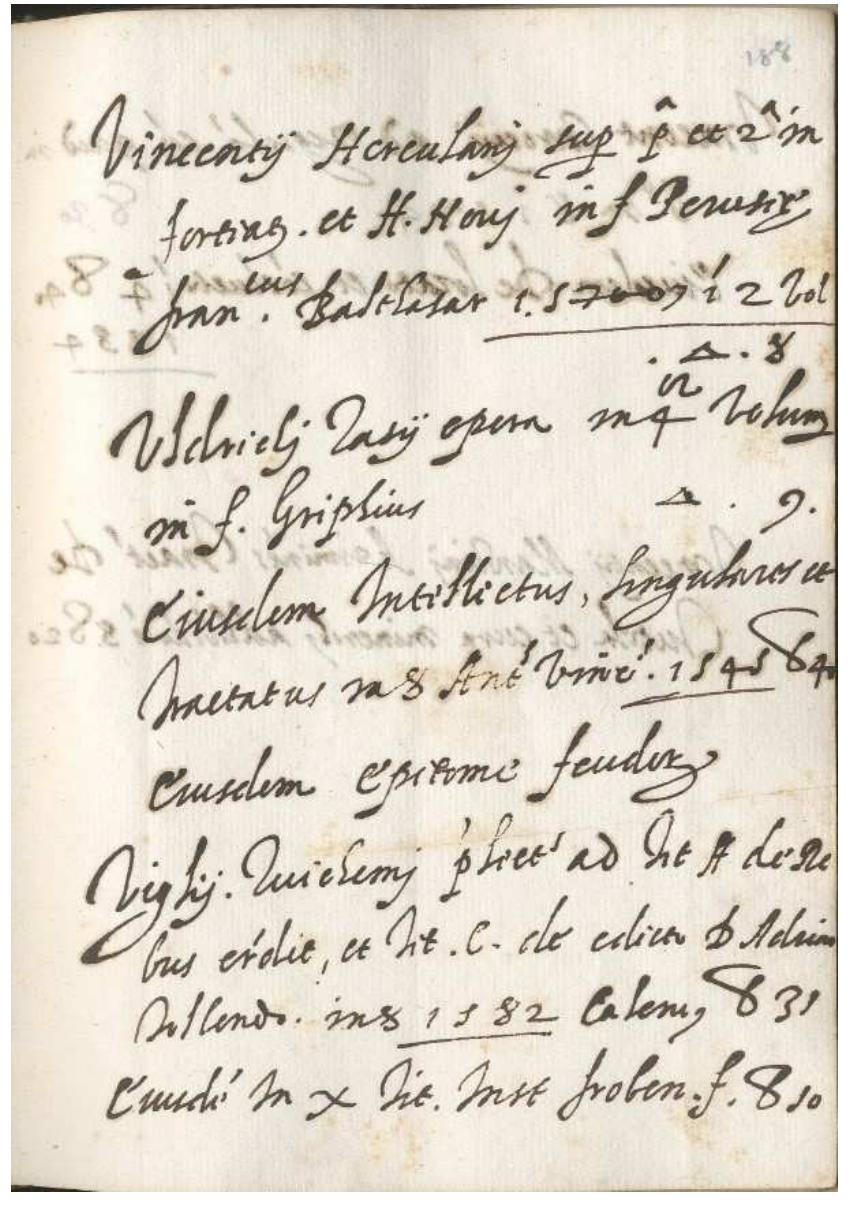 188
Vincentij Herculanj sup p.ª et 2ª in
fortiatz. et ff. Novj in f Perusie,
fran.cus Balthasar 1.5 i 2 Vol
. △ . 8
Vldricij Zasij opera in 4or Volum
in f. Griphius △ . 9.
Eiusdem Intellectus, singulares et
tractatus in 8 Ant' Vinc'. 1545 8 40
Eiusdem Epitome feudorz
Viglij. Zuichemj plect' ad tit ff de Re
bus crédit, et tit. C. de edicto D Adrian
tollendo. in 8 1582 Colonię 8 31
Eiusdé in X tit. Inst froben. f. 8 10